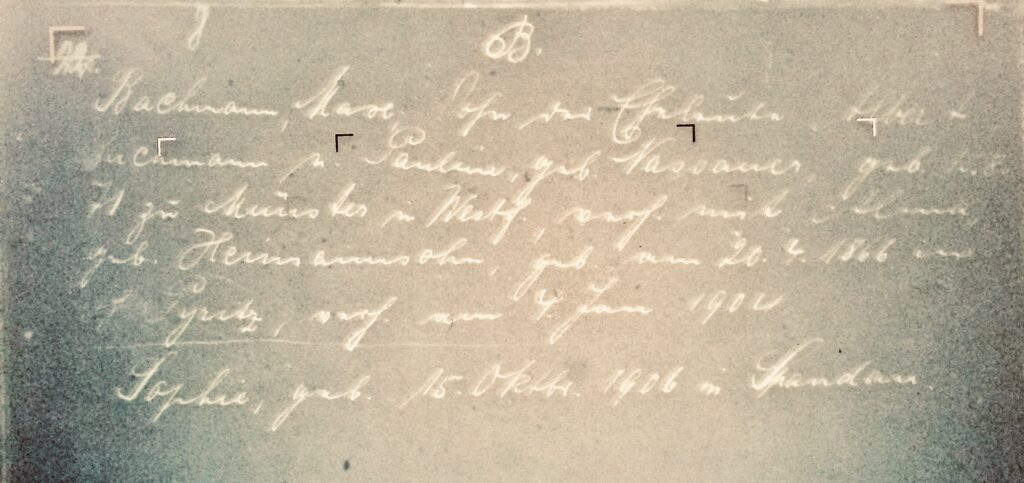 B.
Bachmann, Maxe, Sohn der Eheleute
u. Pauline, geb. Nassauer, geb.
71 zu Münster in Westf., verh. mit
geb. Heimannsohn, geb. am 20. 4. 1866 in
Pyritz, verh. am 4. Jan 1904
Sophie, geb. 15. Oktbr. 1906 in Spandau.